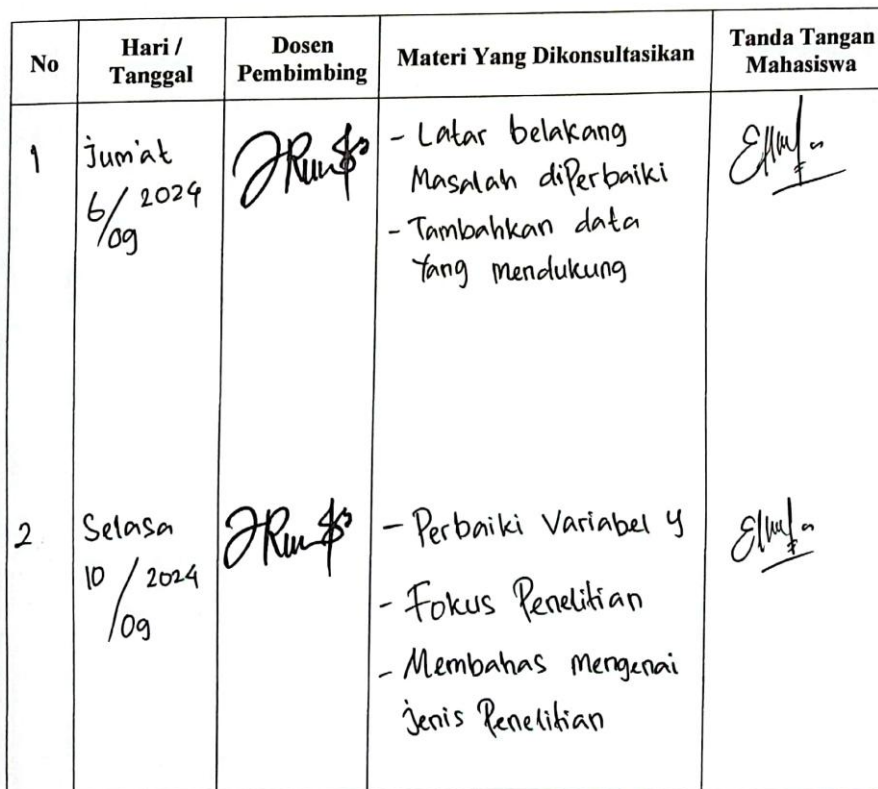 No
Hari /
Tanggal
Dosen
Pembimbing
Materi Yang Dikonsultasikan
Tanda Tangan
Mahasiswa
1
Jum'at
6/09 2024
- Latar belakang
Masalah diPerbaiki
- Tambahkan data
Yang mendukung
2
Selasa
10/09 2024
- Perbaiki Variabel y
- Fokus Penelitian
- Membahas mengenai
jenis Penelitian